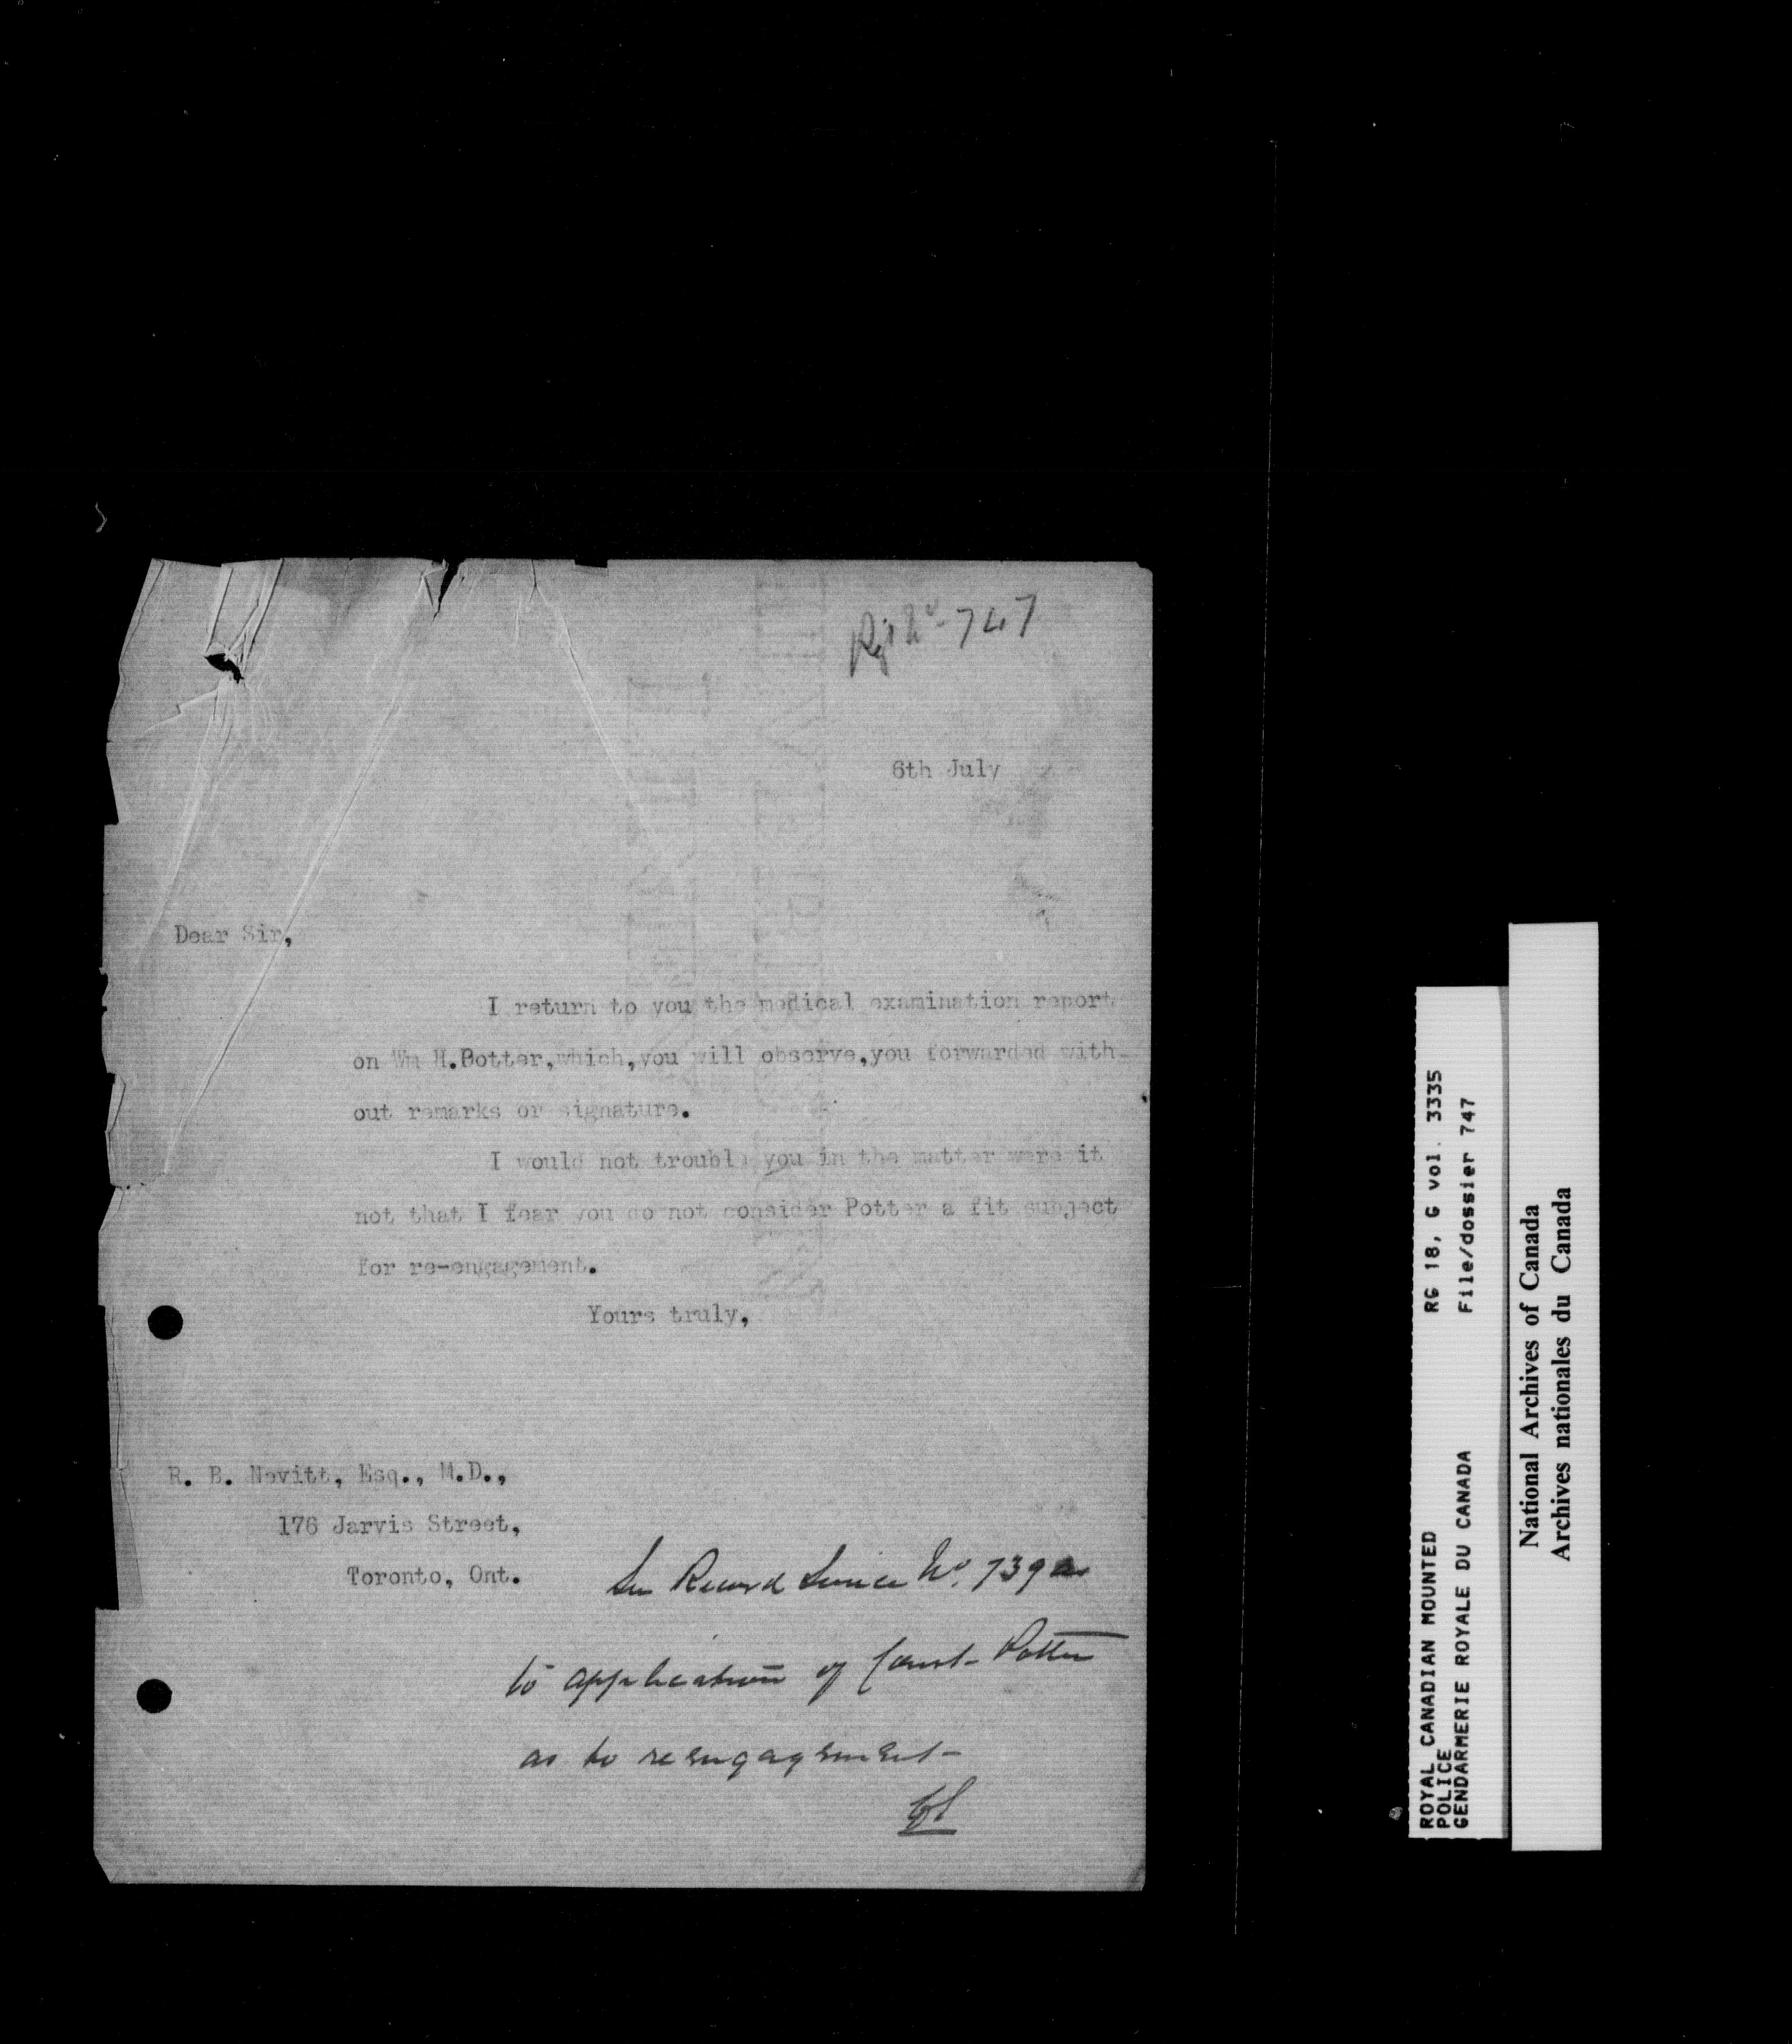 Regt No 747
6th July
Dear Sir,
I return to you the medical examination report
on Wm H.Potter,which,you will observe,you forwarded with-
out remarks or signature.
I would not trouble you in the matter were it
not that I fear you do not consider Potter a fit subject
for re-engagement.
Yours truly,
R. B. Nevitt, Esq., M.D.,
176 Jarvis Street,
Toronto, Ont.
See Record Service No. 739 as
to application of Const- Potter
as to reengagement-
ROYAL CANADIAN MOUNTED RG 18, G vol. 3335
POLICE
GENDARMERIE ROYALE DU CANADA File/dossier 747
National Archives of Canada
Archives nationales du Canada